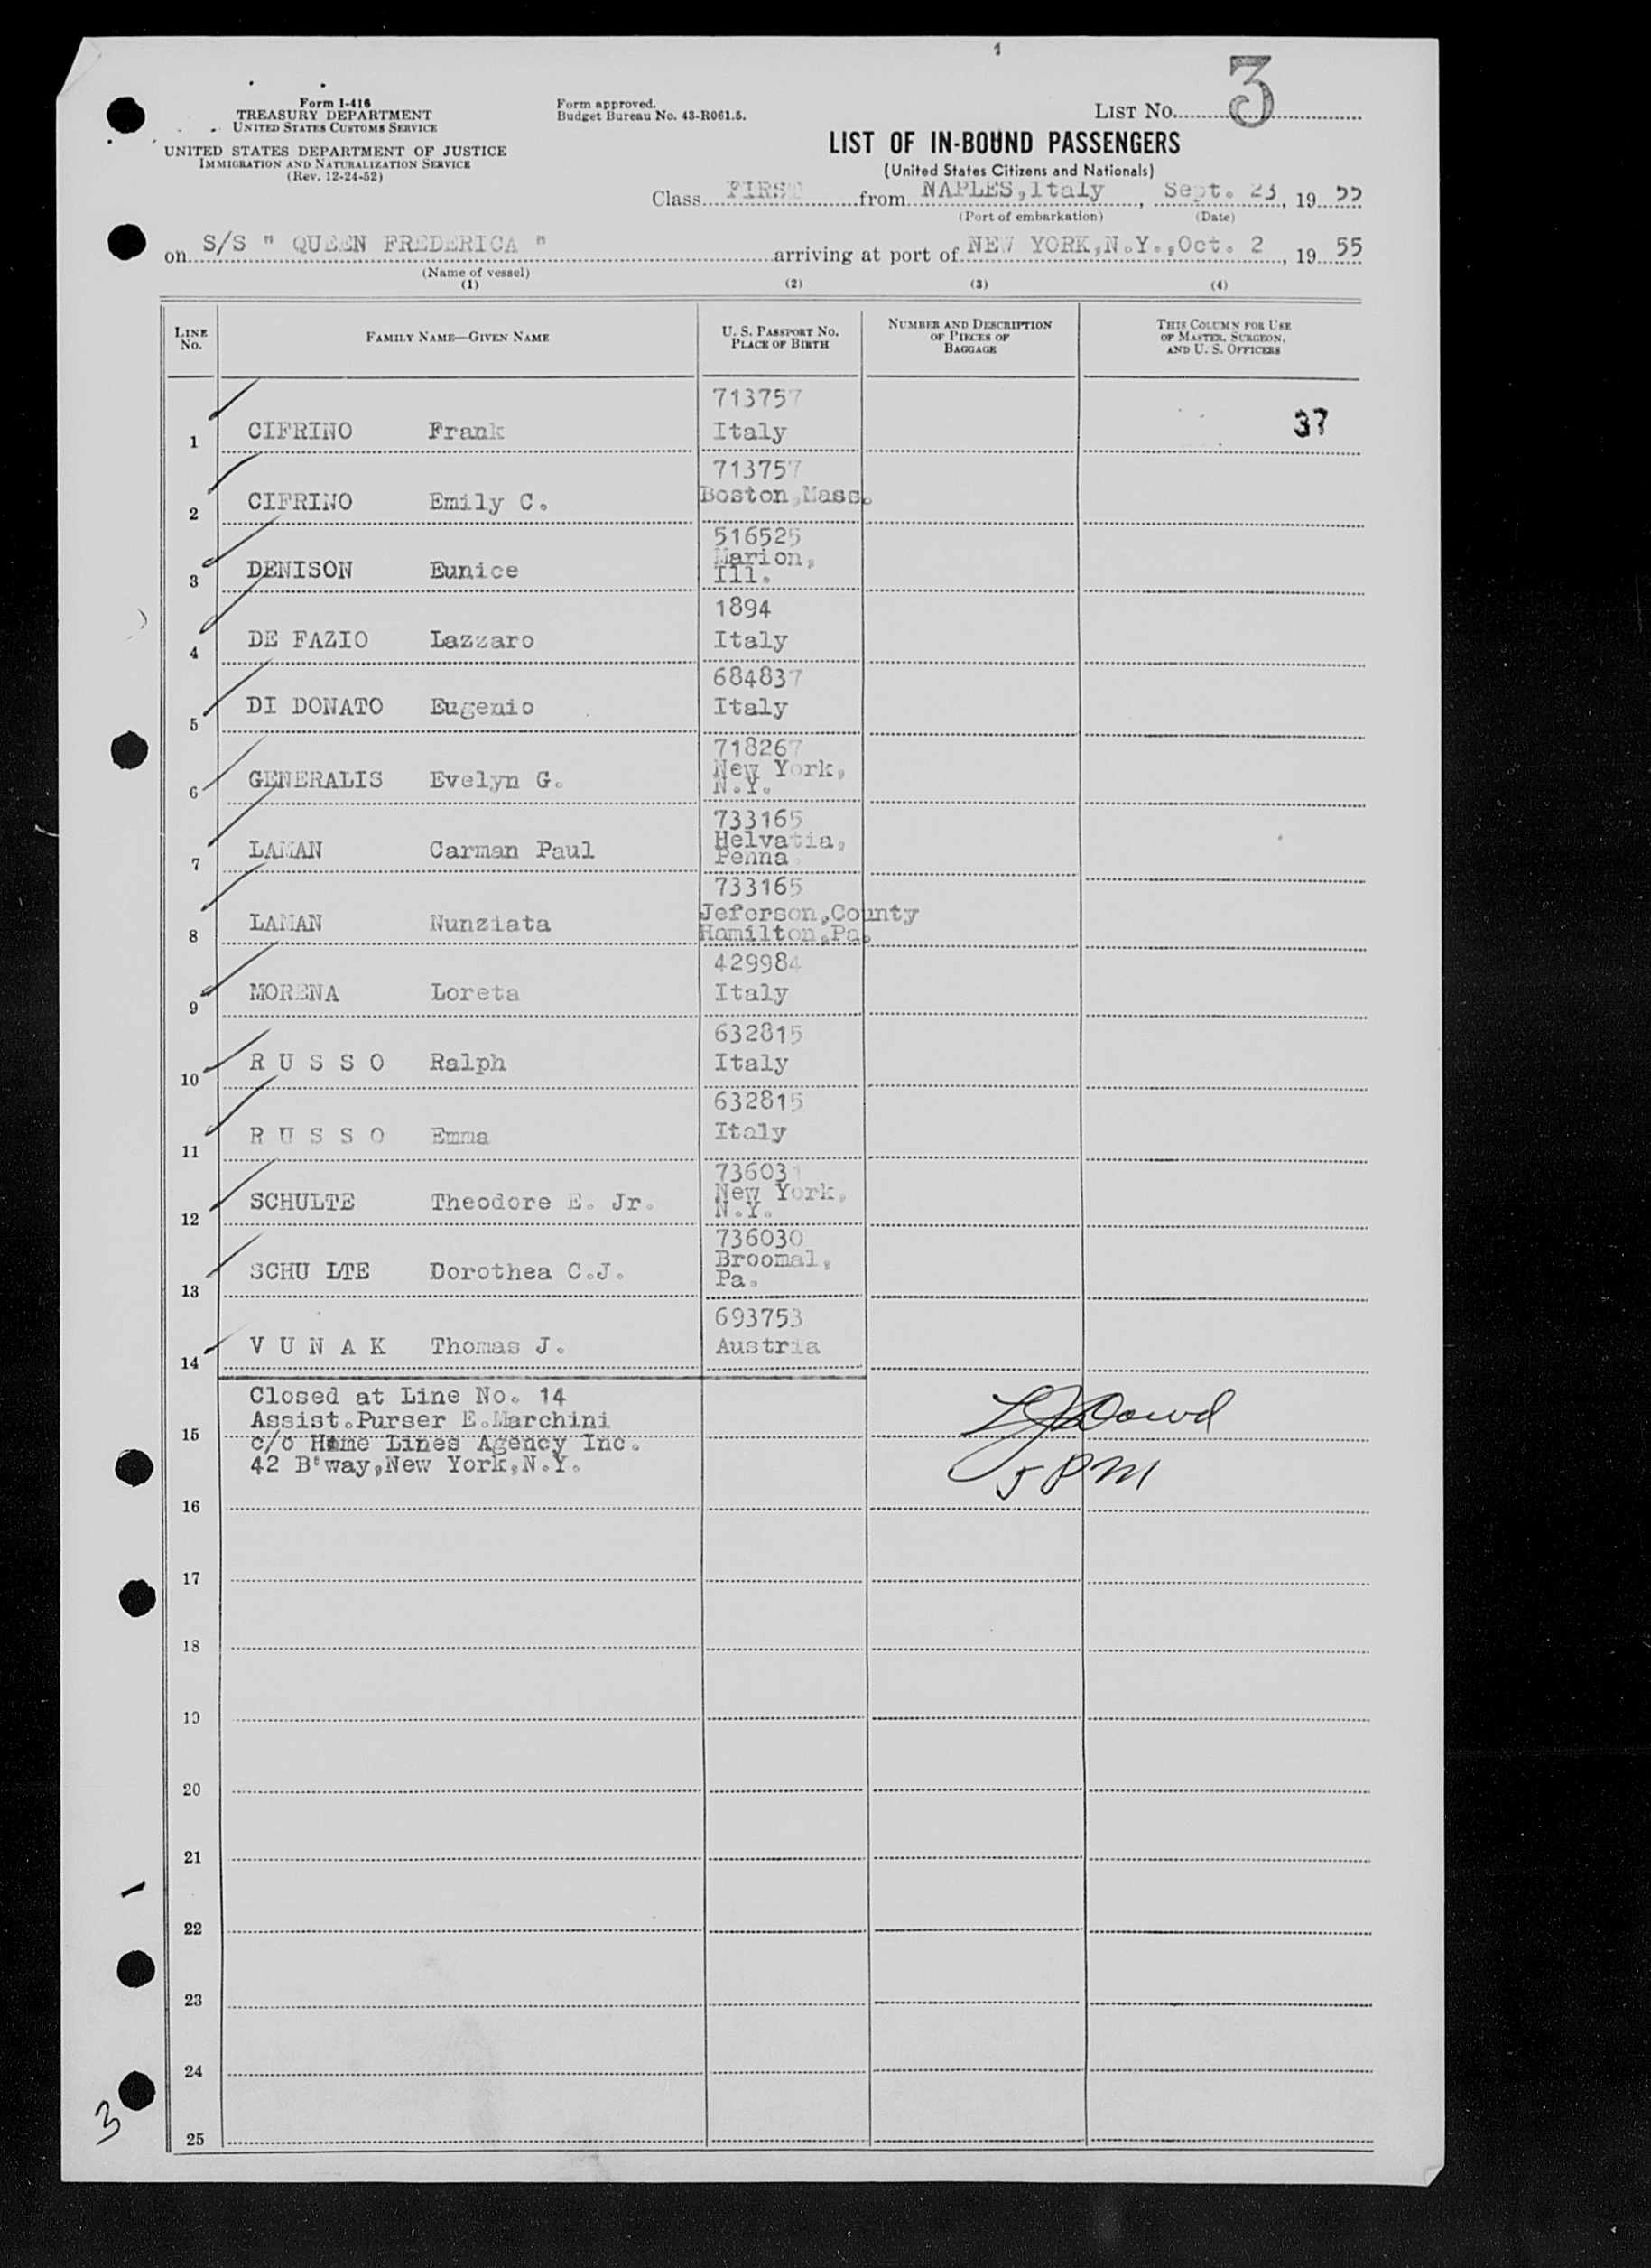 1
Form I-416
TREASURY DEPARTMENT
UNITED STATES CUSTOMS SERVICE
UNITED STATES DEPARTMENT OF JUSTICE
IMMIGRATION AND NATURALIZATION SERVICE
(Rev. 12-24-52)
Form approved.
Budget Bureau No. 43-R061.5.
LIST NO. 3
LIST OF IN-BOUND PASSENGERS
(United States Citizens and Nationals)
Class FIRST from NAPLES,Italy, Sept. 23, 1955
(Port of embarkation) (Date)
on S/S " QUEEN FREDERICA " arriving at port of NEW YORK,N.Y.,Oct. 2, 1955
(Name of vessel)
(1) (2) (3) (4)
LINE No.
FAMILY NAME—GIVEN NAME
U. S. PASSPORT NO.
PLACE OF BIRTH
NUMBER AND DESCRIPTION
OF PIECES OF
BAGGAGE
THIS COLUMN FOR USE
OF MASTER, SURGEON,
AND U. S. OFFICERS
713757
1 CIFRINO Frank Italy 37
713757
2 CIFRINO Emily C. Boston,Mass.
516525
Marion,
3 DENISON Eunice Ill.
1894
4 DE FAZIO Lazzaro Italy
684837
5 DI DONATO Eugenio Italy
718267
New York,
6 GENERALIS Evelyn G. N.Y.
733165
Helvatia,
7 LAMAN Carman Paul Penna.
733165
Jeferson,County
8 LAMAN Nunziata Hamilton,Pa.
429984
9 MORENA Loreta Italy
632815
10 R U S S O Ralph Italy
632815
11 R U S S O Emma Italy
736031
New York,
12 SCHULTE Theodore E. Jr. N.Y.
736030
Broomal,
13 SCHU LTE Dorothea C.J. Pa.
693753
14 V U N A K Thomas J. Austria
Closed at Line No. 14
Assist.Purser E.Marchini
15 c/o Home Lines Agency Inc.
42 B'way,New York,N.Y.
5 PM
16
17
18
19
20
21
22
23
24
3
25